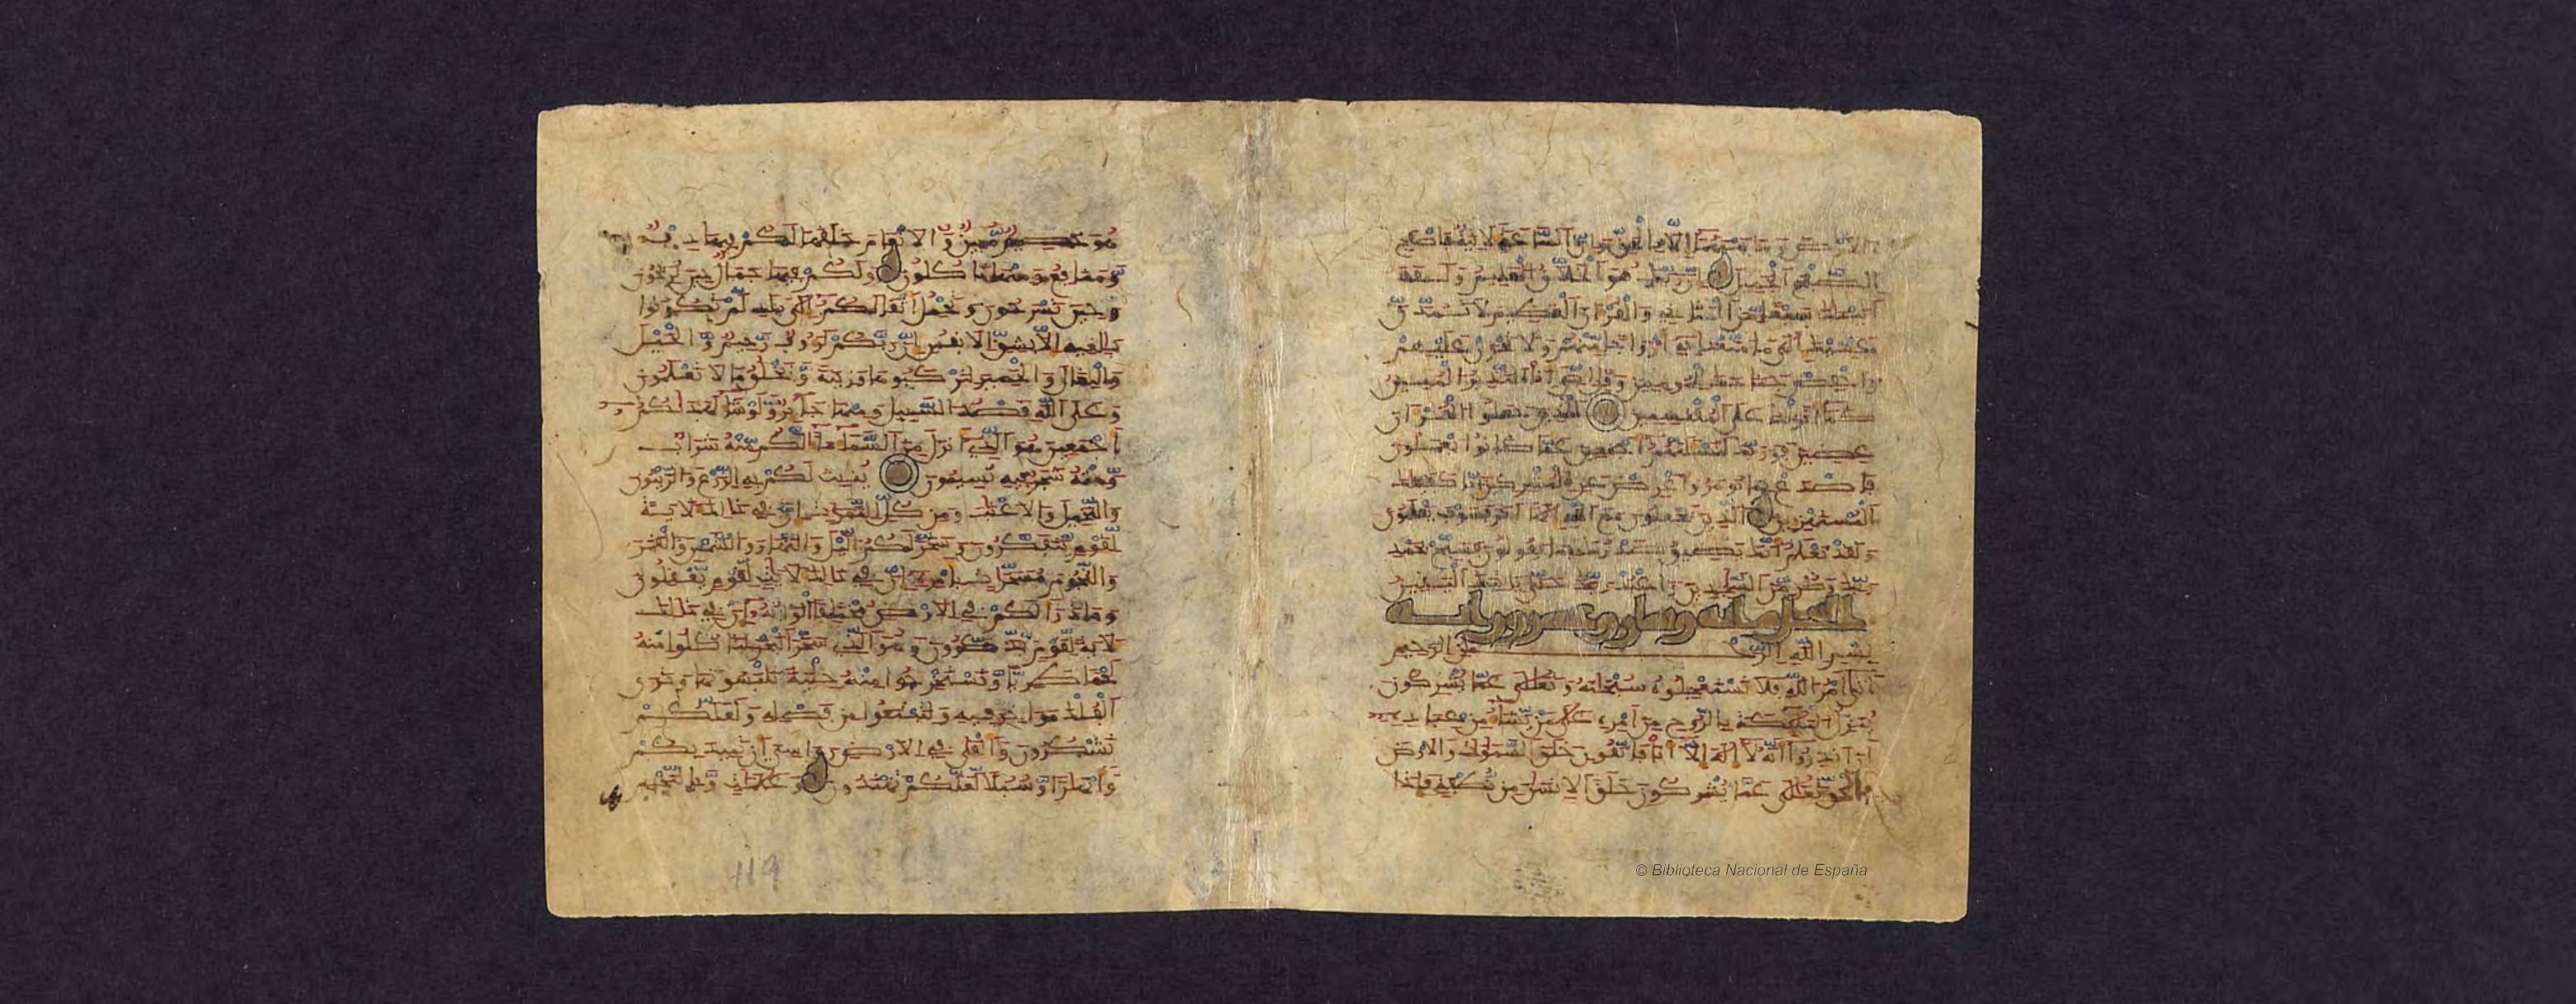 والارض وما بينهما الا بالحق وان الساعة لاتية فاصفح
الصفح الجميل ان ربك هو الخلق العليم ولقد
اتينك سبعا من المثاني والقران العظيم لا تمدن
عينيك الى ما متعنا به ازوجا منهم ولا تحزن عليهم
واخفض جناحك للمومنين وقل اني انا النذير المبين
كما انزلنا على المقتسمين الذين جعلوا القران
عضين فوربك لنسئلنهم اجمعين عما كانوا يعملون
فاصدع بما تومر واعرض عن المشركين انا كفينك
المستهزين الذين يجعلون مع الله الها اخر فسوف يعلمون
ولقد نعلم انك يضيق صدرك بما يقولون فسبح بحمد
ربك وكن من السجدين واعبد ربك حتى ياتيك اليقين
النحل مائة وعشرون اية
بسم الله الرحمن الرحيم
اتى امر الله فلا تستعجلوه سبحنه وتعلى عما يشركون
ينزل الملئكة بالروح من امره على من يشا من عباده
ان انذروا انه لا اله الا انا فاتقون خلق السموت والارض
بالحق تعلى عما يشركون خلق الانسن من نطفة فاذا
هو خصيم مبين والانعام خلقها لكم فيها دفء
ومنافع ومنها تاكلون ولكم فيها جمال حين تريحون
وحين تسرحون وتحمل اثقالكم الى بلد لم تكونوا
بلغيه الا بشق الانفس ان ربكم لروف رحيم والخيل
والبغال والحمير لتركبوها وزينة ويخلق ما لا تعلمون
وعلى الله قصد السبيل ومنها جاير ولو شا لهديكم
اجمعين هو الذي انزل من السما ما لكم منه شراب
ومنه شجر فيه تسيمون ينبت لكم به الزرع والزيتون
والنخيل والاعنب ومن كل الثمرت ان في ذلك لاية
لقوم يتفكرون وسخر لكم اليل والنهار والشمس والقمر
والنجوم مسخرت بامره ان في ذلك لايت لقوم يعقلون
وما ذرا لكم في الارض مختلفا الونه ان في ذلك
لاية لقوم يذكرون وهو الذي سخر البحر لتاكلوا منه
لحما طريا وتستخرجوا منه حلية تلبسونها وترى
الفلك مواخر فيه ولتبتغوا من فضله ولعلكم
تشكرون والقى في الارض روسي ان تميد بكم
وانهرا وسبلا لعلكم تهتدون وعلمت وبالنجم
119
© Biblioteca Nacional de España